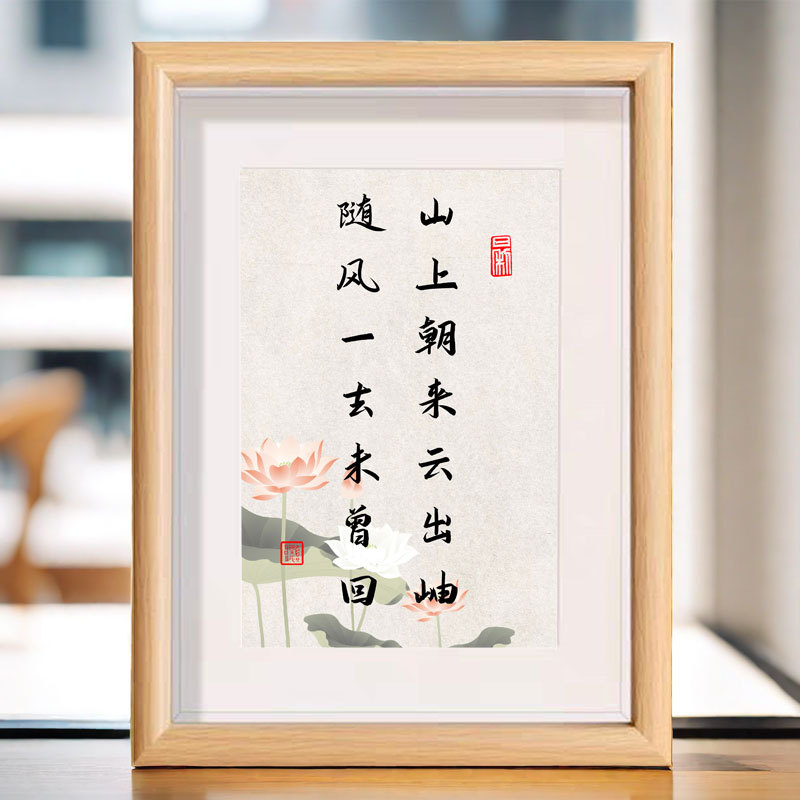 山上朝来云出岫
随风一去未曾回
日新